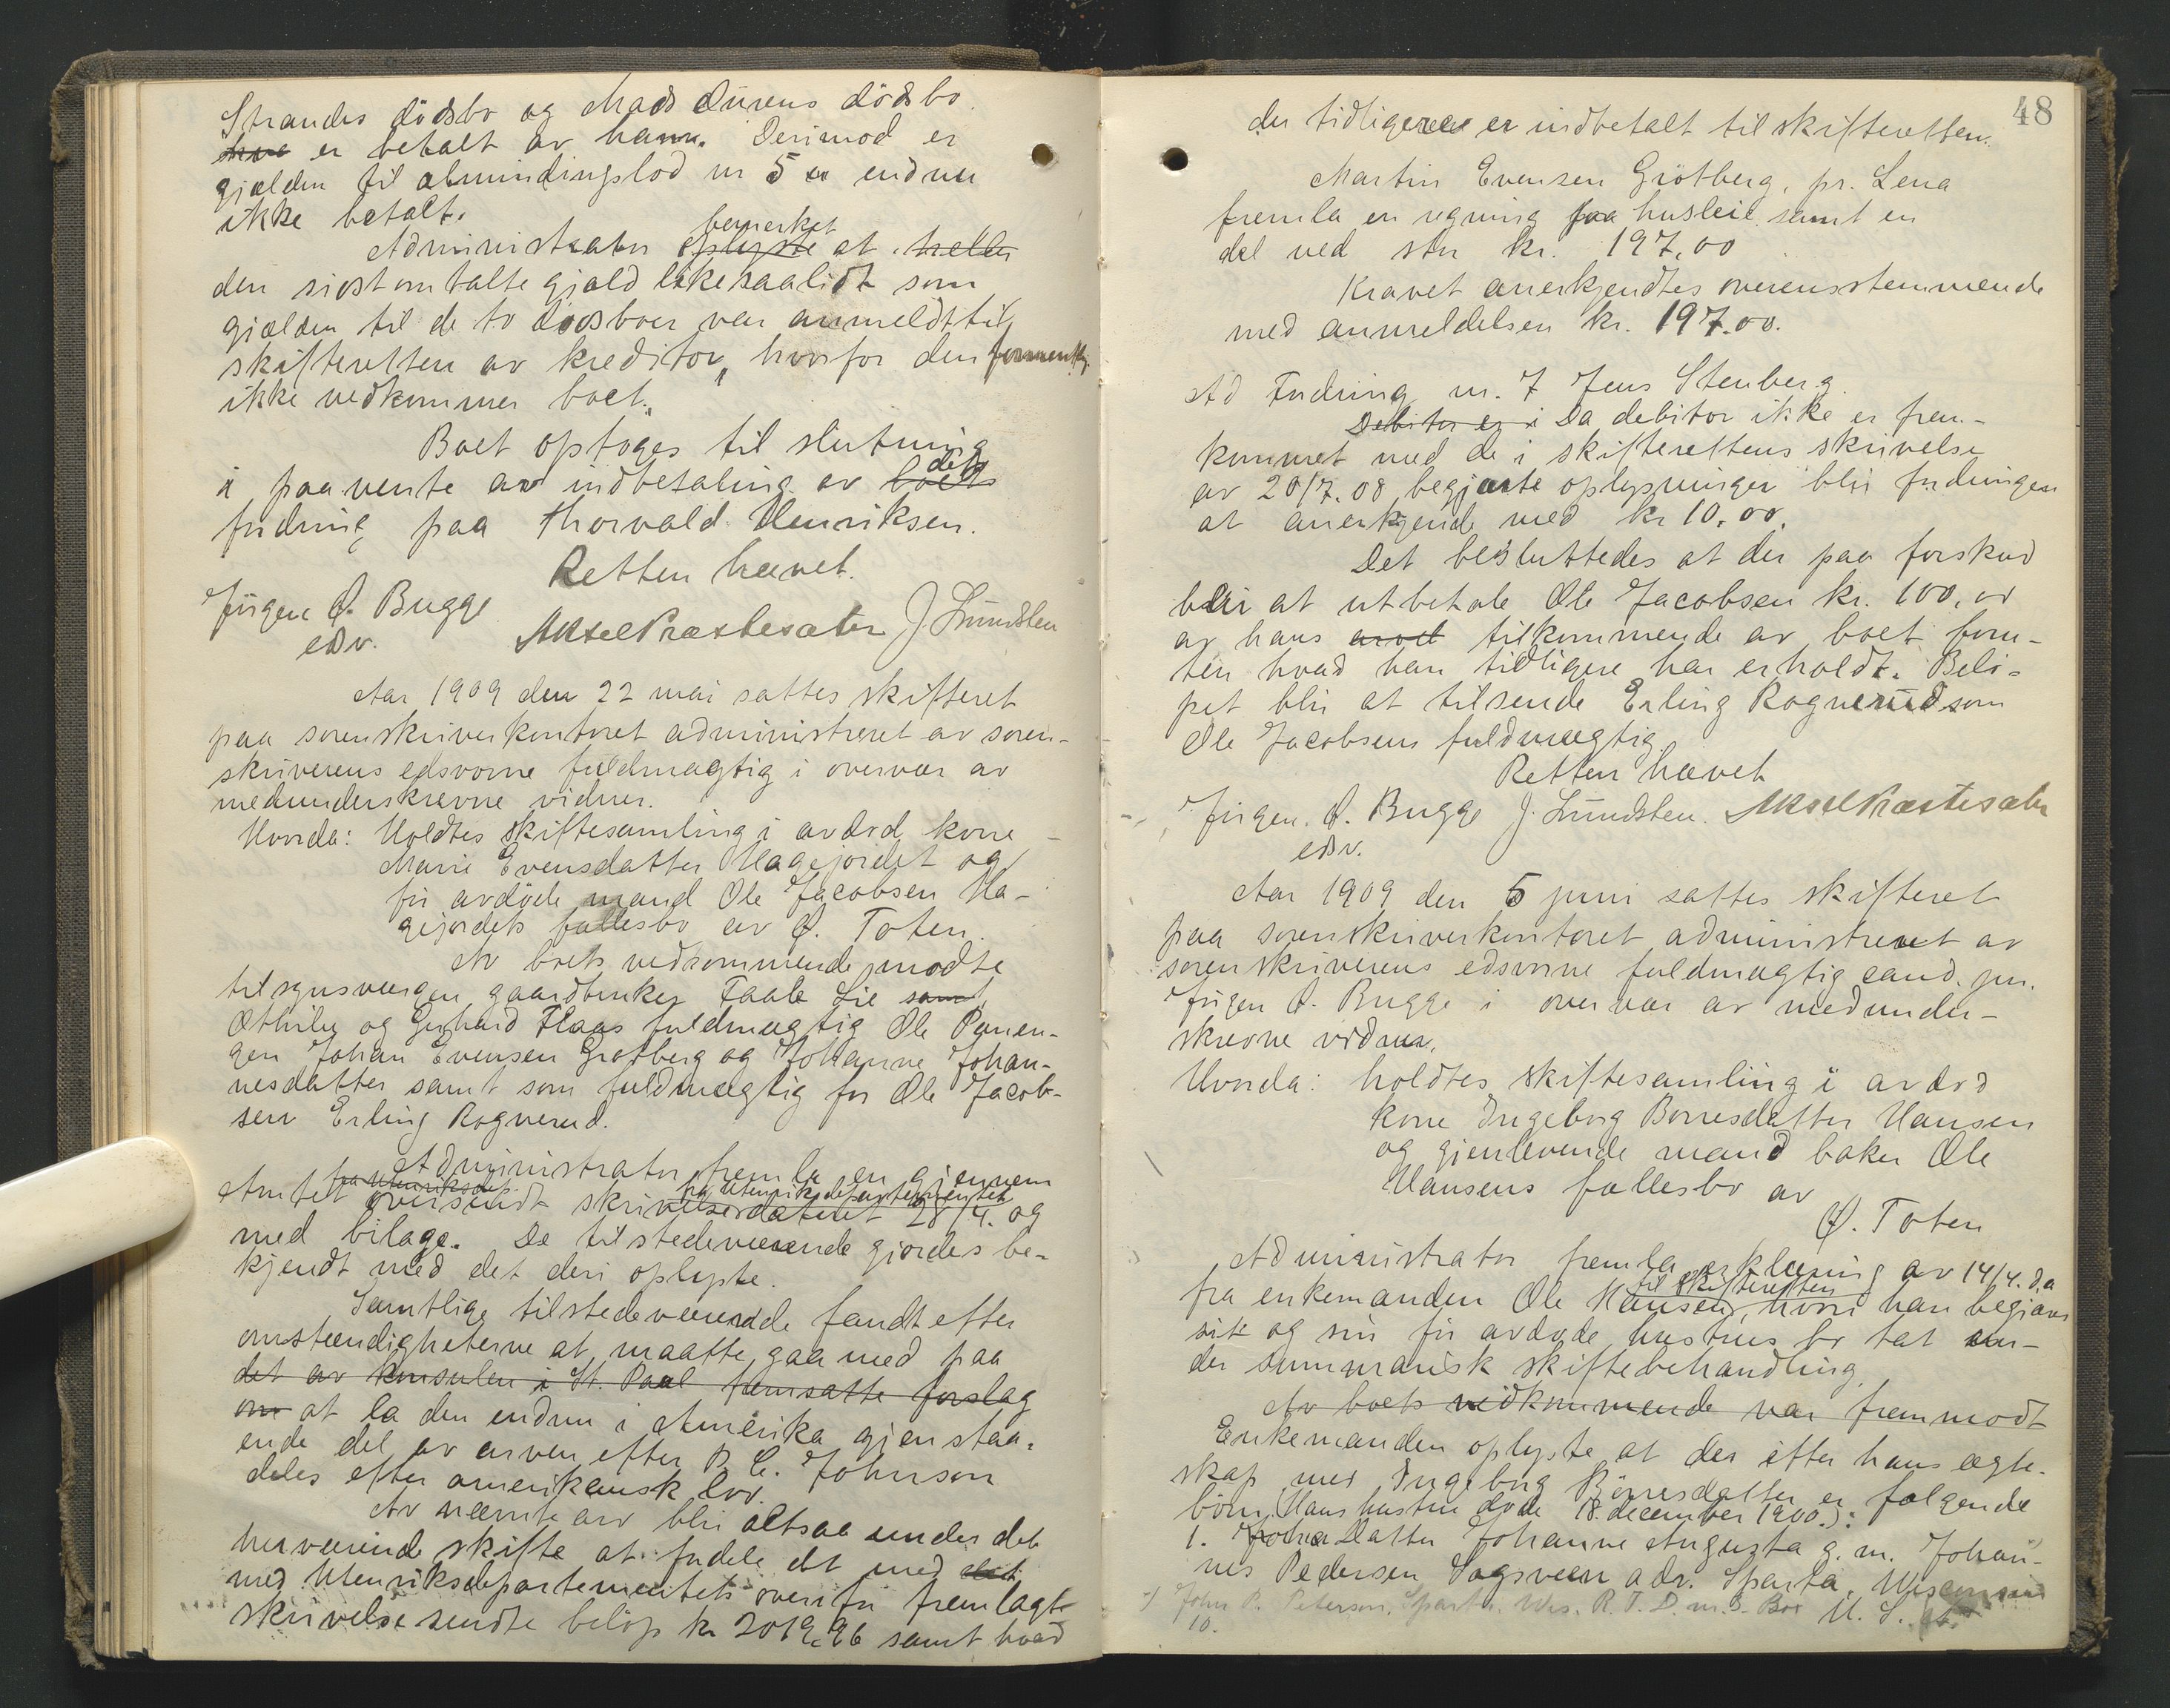 Strandes dödsbo og Mads Dürens dödsbo
er betalt av ham. Derimod er
gjælden til almindingslod nr 5 endnu
ikke betalt.
bemerket
Administrator oplyste at heller
den sidst omtalte gjæld likesaalidt som
gjælden til de to dødsboer var anmeldt til
skifteretten av kreditor, hvorfor den formentlig
ikke vedkommer boet.
Boet optoges til slutning
dets
i paavente av indbetaling av boets
fordring paa Thorvald Henriksen.
Retten hævet.
Jürgen Ø. Bugge Aksel Præstesæter J. Lundsten
edsv.
Aar 1909 den 22 mai sattes skifteret
paa sorenskriverkontoret administreret av soren-
skriverens edsvorne fuldmægtig i overvær av
medunderskrevne vidner.
Hvorda: Holdtes skiftesamling i avdød kone
Marie Evensdatter Hagejordet og
før avdöde mand Ole Jacobsen Ha-
gejordets fællesbo av Ø. Toten.
Av boets vedkommende mødte
tilsynsværgen gaardbruker Faale Lie samt
Othilie og Gerhard Flaas fuldmægtig Ole Panen-
gen Johan Evensen Grøtberg og Johanne Johan-
nesdatter samt som fuldmægtig for Ole Jacob-
sen Erling Rognerud.
Administrator fremla en gjennem
fra Utenriksdet fra Utenriksdepartementet
Amtet oversendt skrivelse dateret 28/4. og
med bilage. De tilstedeværende gjordes be-
kjendt med det deri oplyste.
Samtlige tilstedeværende fandt efter
omstændigheterne at maatte gaa med paa
det av konsulen i St. Paul fremsatte forslag
om at la den endnu i Amerika gjenstaa-
ende del av arven efter B. C. Johnson
deles efter amerikansk lov.
Av nævnte arv blir altsaa under det
herværende skifte at fordele det med det
med Utenriksdepartementets ovenfor fremlagte
skrivelse sendte belöp kr 2019.96 samt hvad
48
der tidligere er indbetalt til skifteretten.
Martin Evensen Grötberg, pr. Lena
fremla en regning paa husleie samt en
del ved stor kr. 197,00
Kravet anerkjendtes overensstemmende
med anmeldelsen kr. 197.00.
Ad Fordring nr. 7 Jens Stenberg
Debitor er i Da debitor ikke er frem-
kommet med de i skifterettens skrivelse
av 20/7.08 begjærte oplysninger blir fordringen
at anerkjende med kr 10,00.
Det besluttedes at der paa forskud
blir at utbetale Ole Jacobsen kr. 100,00
av hans arvet tilkommende av boet foru-
ten hvad han tidligere har erholdt. Belö-
pet blir at tilsende Erling Rognerud som
Ole Jacobsens fuldmægtig.
Retten hævet
Jürgen Ø. Bugge J. Lundsten. Aksel Præstesæter
edsv.
Aar 1909 den 5 juni sattes skifteret
paa sorenskriverkontoret administreret av
sorenskriverens edsvorne fuldmægtig cand. jur.
Jürgen Ø. Bugge i overvær av medunder-
skrevne vidner.
Hvorda: holdtes skiftesamling i avdød
kone Ingeborg Börresdatter Hansen
og gjenlevende mand baker Ole
Hansens fællesbo av
Ø. Toten
Administrator fremla erklæring av 14/4. d.a
til skifteretten
fra enkemanden Ole Hansen, hvori han begjærer
sit og sin før avdøde hustrus bo tat un-
der summarisk skiftebehandling.
Av boets vedkommende var fremmødt
Enkemanden oplyste at der efter hans ægte-
skap med Ingeborg Börresdatter er følgende
börn, Hans hustru døde 18. december 1900.):
1. Datter Johanne Augusta g. m. Johan-
nes Pedersen Sagsveen adr. Sparta, Wisconsin
U. S.
John P. Peterson, Sparta. Wis. R. F. D. m. 3. Box
10.